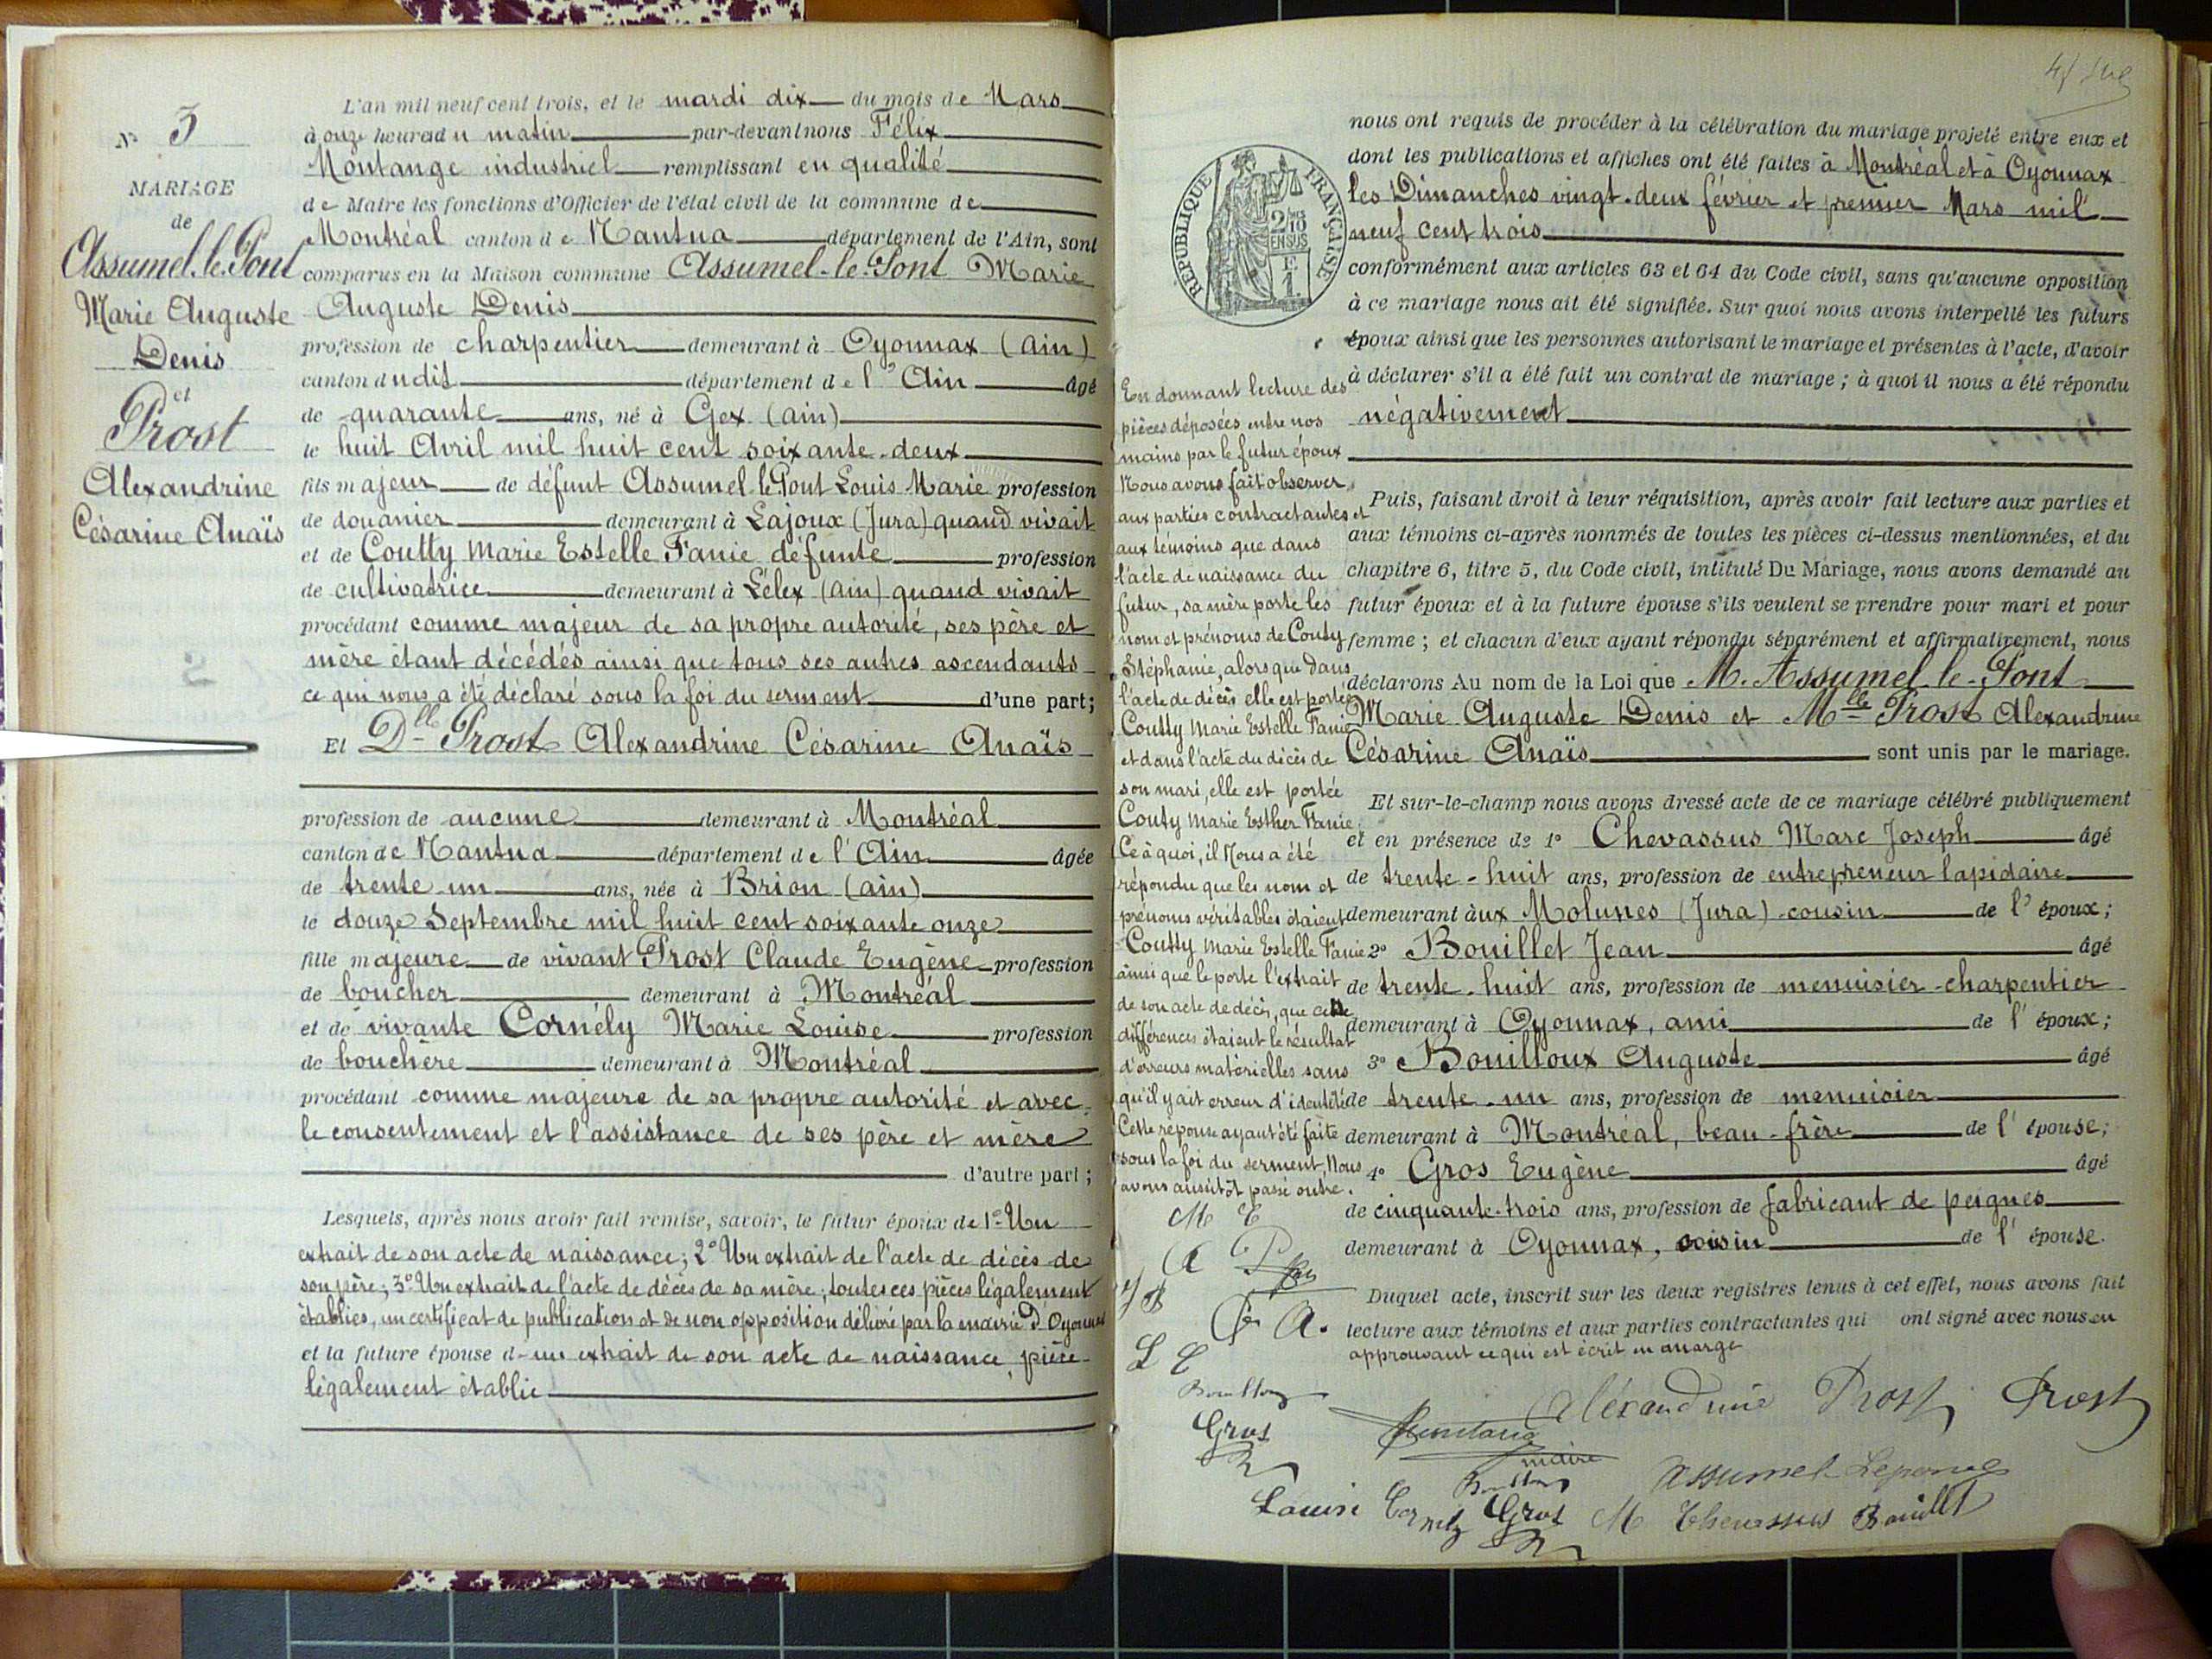 N° 3
MARIAGE
de
Assumel-le-Pont
Marie Auguste
Denis
et
Prost
Alexandrine
Césarine Anaïs
L'an mil neuf cent trois, et le mardi dix du mois de Mars
à onze heures du matin par-devant nous Félix
Montange industriel remplissant en qualité
de Maire les fonctions d'Officier de l'état civil de la commune de
Montréal canton de Nantua département de l'Ain, sont
comparus en la Maison commune Assumel-le-Pont Marie
Auguste Denis
profession de charpentier demeurant à Oyonnax (Ain)
canton dudit département de l'Ain âgé
de quarante ans, né à Gex (Ain)
le huit Avril mil huit cent soixante-deux
fils majeur de défunt Assumel-le-Pont Louis Marie profession
de douanier demeurant à Lajoux (Jura) quand vivait
et de Coutty Marie Estelle Fanie défunte profession
de cultivatrice demeurant à Lélex (Ain) quand vivait
procédant comme majeur de sa propre autorité, ses père et
mère étant décédés ainsi que tous ses autres ascendants
ce qui nous a été déclaré sous la foi du serment d'une part;
Et Dlle Prost Alexandrine Césarine Anaïs
profession de aucune demeurant à Montréal
canton de Nantua département de l'Ain âgée
de trente-un ans, née à Brion (Ain)
le douze Septembre mil huit cent soixante onze
fille majeure de vivant Prost Claude Eugène profession
de boucher demeurant à Montréal
et de vivante Cornély Marie Louise profession
de bouchère demeurant à Montréal
procédant comme majeure de sa propre autorité et avec
le consentement et l'assistance de ses père et mère
d'autre part;
Lesquels, après nous avoir fait remise, savoir, le futur époux de 1° Un
extrait de son acte de naissance; 2° Un extrait de l'acte de décès de
son père; 3° Un extrait de l'acte de décès de sa mère; toutes ces pièces légalement
établies, un certificat de publication et de non opposition délivré par la mairie d'Oyonnax
et la future épouse d'un extrait de son acte de naissance pièce
légalement établie
REPUBLIQUE FRANÇAISE
2/10 EN SUS
nous ont requis de procéder à la célébration du mariage projeté entre eux et
dont les publications et affiches ont été faites à Montréal et à Oyonnax
les Dimanches vingt-deux février et premier Mars mil
neuf cent trois
conformément aux articles 63 et 64 du Code civil, sans qu'aucune opposition
à ce mariage nous ait été signifiée. Sur quoi nous avons interpellé les futurs
époux ainsi que les personnes autorisant le mariage et présentes à l'acte, d'avoir
à déclarer s'il a été fait un contrat de mariage; à quoi il nous a été répondu
négativement
Puis, faisant droit à leur réquisition, après avoir fait lecture aux parties et
aux témoins ci-après nommés de toutes les pièces ci-dessus mentionnées, et du
chapitre 6, titre 5, du Code civil, intitulé Du Mariage, nous avons demandé au
futur époux et à la future épouse s'ils veulent se prendre pour mari et pour
femme; et chacun d'eux ayant répondu séparément et affirmativement, nous
déclarons Au nom de la Loi que M. Assumel-le-Pont
Marie Auguste Denis et Mlle Prost Alexandrine
Césarine Anaïs sont unis par le mariage.
Et sur-le-champ nous avons dressé acte de ce mariage célébré publiquement
et en présence de 1° Chevassus Marc Joseph âgé
de trente-huit ans, profession de entrepreneur lapidaire
demeurant aux Molunes (Jura) cousin de l'époux;
2° Bouillet Jean âgé
de trente-huit ans, profession de menuisier-charpentier
demeurant à Oyonnax, ami de l'époux;
3° Bouilloux Auguste âgé
de trente-un ans, profession de menuisier
demeurant à Montréal, beau-frère de l'épouse;
4° Gros Eugène âgé
de cinquante-trois ans, profession de fabricant de peignes
demeurant à Oyonnax, voisin de l'épouse.
Duquel acte, inscrit sur les deux registres tenus à cet effet, nous avons fait
lecture aux témoins et aux parties contractantes qui ont signé avec nous en
approuvant ce qui est écrit en marge
En donnant lecture des
pièces déposées entre nos
mains par le futur époux
Nous avons fait observer
aux parties contractantes et
aux témoins que dans
l'acte de naissance du
futur, sa mère porte les
nom et prénoms de Couty
Stéphanie, alors que dans
l'acte de décès elle est portée
Coutty Marie Estelle Fanie
et dans l'acte du décès de
son mari, elle est portée
Couty Marie Esther Fanie.
Ce à quoi, il Nous a été
répondu que les nom et
prénoms véritables étaient
Coutty Marie Estelle Fanie
ainsi que le porte l'extrait
de son acte de décès, que ces
différences étaient le résultat
d'erreurs matérielles sans
qu'il y ait erreur d'identité
Cette réponse ayant été faite
sous la foi du serment, Nous
avons aussitôt passé outre.
M C
A P
J B
A.
L C
Bouilloux
Gros
Alexandrine Prost Prost
Montange
maire
Bouilloux Assumel-Lepont
Louise Cornely Gros M Chevassus Bouillet